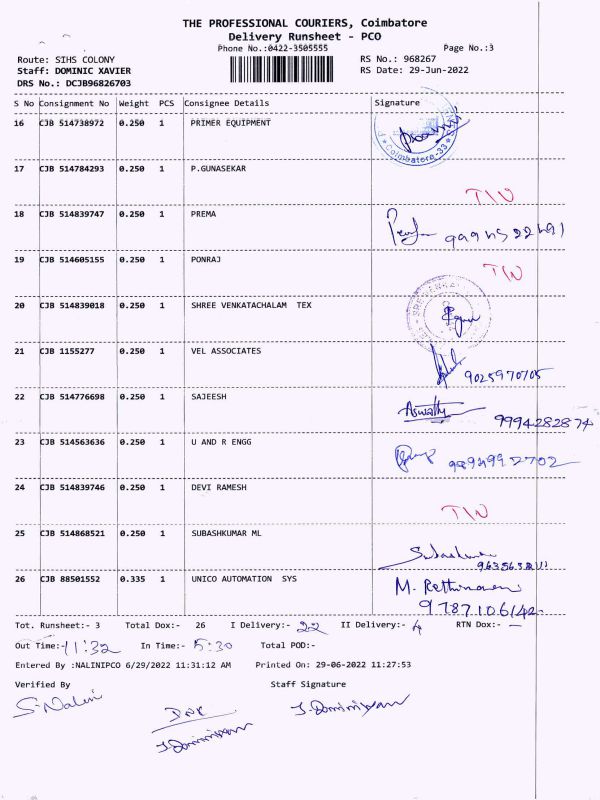 THE PROFESSIONAL COURIERS, Coimbatore
Delivery Runsheet - PCO
Phone No.:0422-3505555 Page No.:3
Route: SIHS COLONY RS No.: 968267
Staff: DOMINIC XAVIER RS Date: 29-Jun-2022
DRS No.: DCJB96826703
S No Consignment No Weight PCS Consignee Details Signature
16 CJB 514738972 0.250 1 PRIMER EQUIPMENT
Coimbatore-33
17 CJB 514784293 0.250 1 P.GUNASEKAR
18 CJB 514839747 0.250 1 PREMA
19 CJB 514605155 0.250 1 PONRAJ
20 CJB 514839018 0.250 1 SHREE VENKATACHALAM TEX
21 CJB 1155277 0.250 1 VEL ASSOCIATES
9025970705
22 CJB 514776698 0.250 1 SAJEESH
Aswathy 9994282874
23 CJB 514563636 0.250 1 U AND R ENGG
24 CJB 514839746 0.250 1 DEVI RAMESH
25 CJB 514868521 0.250 1 SUBASHKUMAR ML
26 CJB 88501552 0.335 1 UNICO AUTOMATION SYS
9787106142
Tot. Runsheet:- 3 Total Dox:- 26 I Delivery:- 22 II Delivery:- 4 RTN Dox:- —
Out Time:- 11:32 In Time:- 5:30 Total POD:-
Entered By :NALINIPCO 6/29/2022 11:31:12 AM Printed On: 29-06-2022 11:27:53
Verified By Staff Signature
S. Nalini